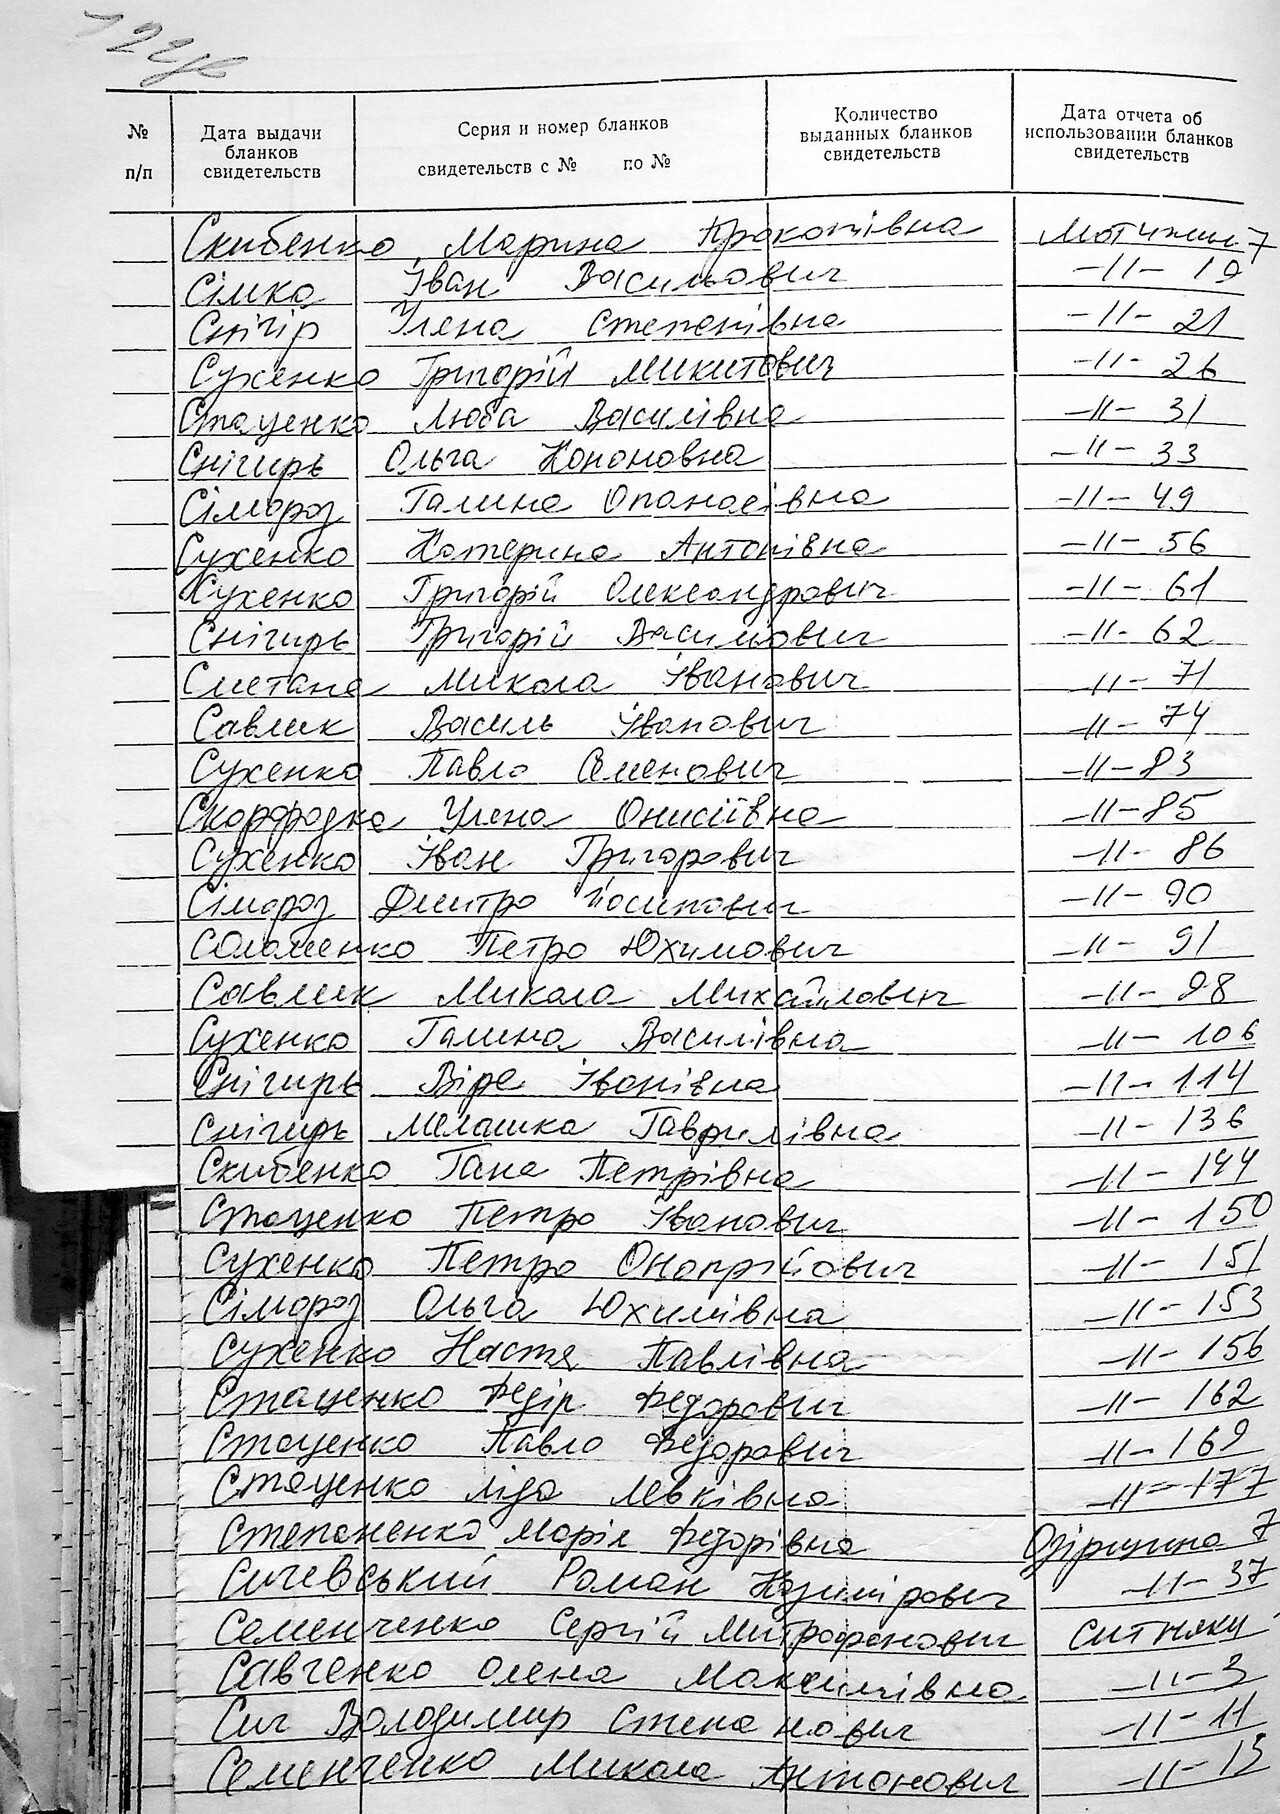 № п/п
Дата выдачи бланков свидетельств
Серия и номер бланков свидетельств с № по №
Количество выданных бланков свидетельств
Дата отчета об использовании бланков свидетельств
Скибенко Марина Прокопівна Мотижин 7
Сімко Іван Васильович -11- 19
Снігір Уляна Степанівна -11- 21
Сухенко Григорій Микитович -11- 26
Стаценко Люба Василівна -11- 31
Снігирь Ольга Кононовна -11- 33
Сімороз Галина Опанасівна -11- 49
Сухенко Катерина Антонівна -11- 56
Сухенко Григорій Олександрович -11- 61
Снігирь Григорій Васильович -11- 62
Сметана Микола Іванович -11- 71
Савлик Василь Іванович -11- 74
Сухенко Павло Семенович -11- 83
Скородозка Уляна Онисіївна -11- 85
Сухенко Іван Григорович -11- 86
Сімороз Дмитро Йосипович -11- 90
Соломенко Петро Юхимович -11- 91
Савлик Микола Михайлович -11- 98
Сухенко Галина Василівна -11- 106
Снігирь Віра Іванівна -11- 114
Снігирь Мелашка Гаврилівна -11- 136
Скибенко Гана Петрівна -11- 144
Стаценко Петро Іванович -11- 150
Сухенко Петро Онопрійович -11- 151
Сімороз Ольга Юхимівна -11- 153
Сухенко Настя Павлівна -11- 156
Стаценко Федір Федорович -11- 162
Стаценко Павло Федорович -11- 169
Стаценко Ліда Левківна -11- 177
Степаненко Марія Федорівна 7
Сичевський Роман Казимірович -11- 37
Семенченко Сергій Митрофанович Ситняки
Савченко Олена Максимівна -11- 3
Сич Володимир Степанович -11- 11
Семенченко Микола Антонович -11- 13